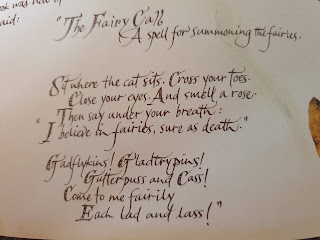 ook was
said:
"The Fairy Call
A spell for summoning the fairies.
Sit where the cat sits. Cross your toes.
Close your eyes. And smell a rose.
Then say under your breath:
"I believe in fairies, sure as death."
Gadflykins! Gladtrypins!
Gutterpuss and Cass!
Come to me fairily
Each lad and lass!"